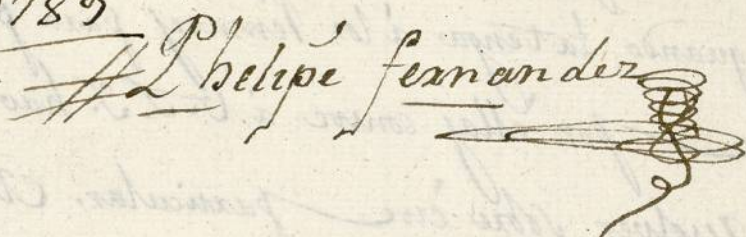 1789
Phelipe fernandez